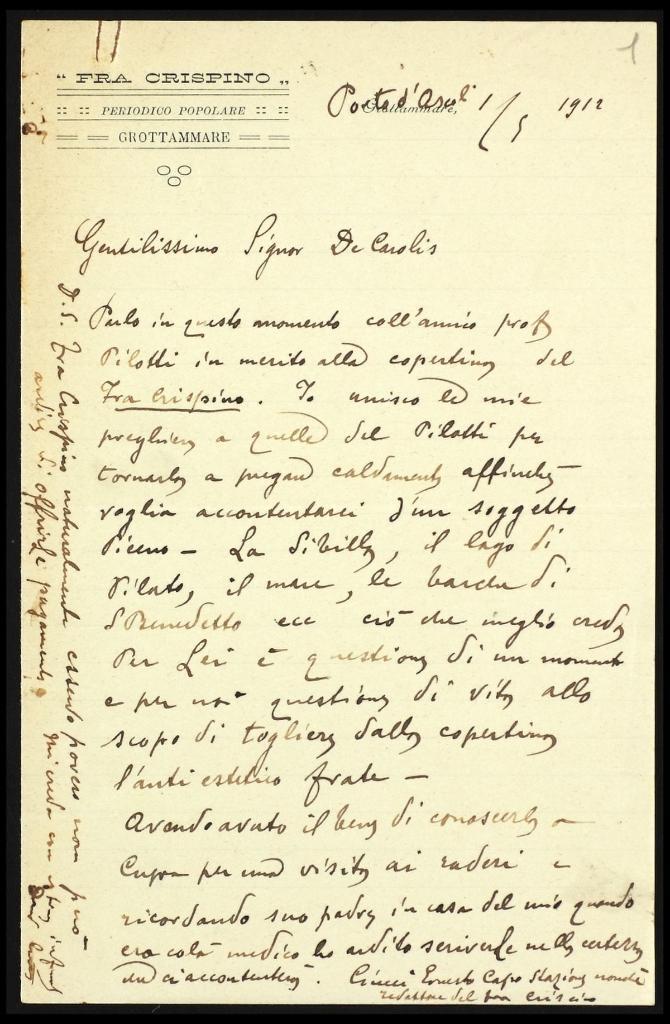 1
" FRA CRISPINO „
:: :: PERIODICO POPOLARE :: ::
GROTTAMMARE
Grottammare,
Porto d'Ascoli 1/5 1912
Gentilissimo Signor De Carolis
Parlo in questo momento coll'amico prof
Pilotti in merito alla copertina del
Fra Crispino. Io unisco le mie
preghiere a quelle del Pilotti per
tornarla a pregare caldamente affinchè
voglia accontentarci d'un soggetto
Piceno — La Sibilla, il lago di
Pilato, il mare, le barche di
S Benedetto ecc ciò che meglio creda
Per Lei è questione di un momento
e per noi questione di vita allo
scopo di togliere dalla copertina
l'antiestetico frate —
Avendo avuto il bene di conoscerla a
Cupra per una visita ai ruderi e
ricordando suo padre in casa del mio quando
era colà medico ho ardito scriverle nella certezza
che ci accontenterà. Ciucci Ernesto Capo Stazione nonchè
redattore del Fra Crispino
D.S. Fra Crispino naturalmente essendo povero non può
ardire di offrirle pagamento
Mi creda con